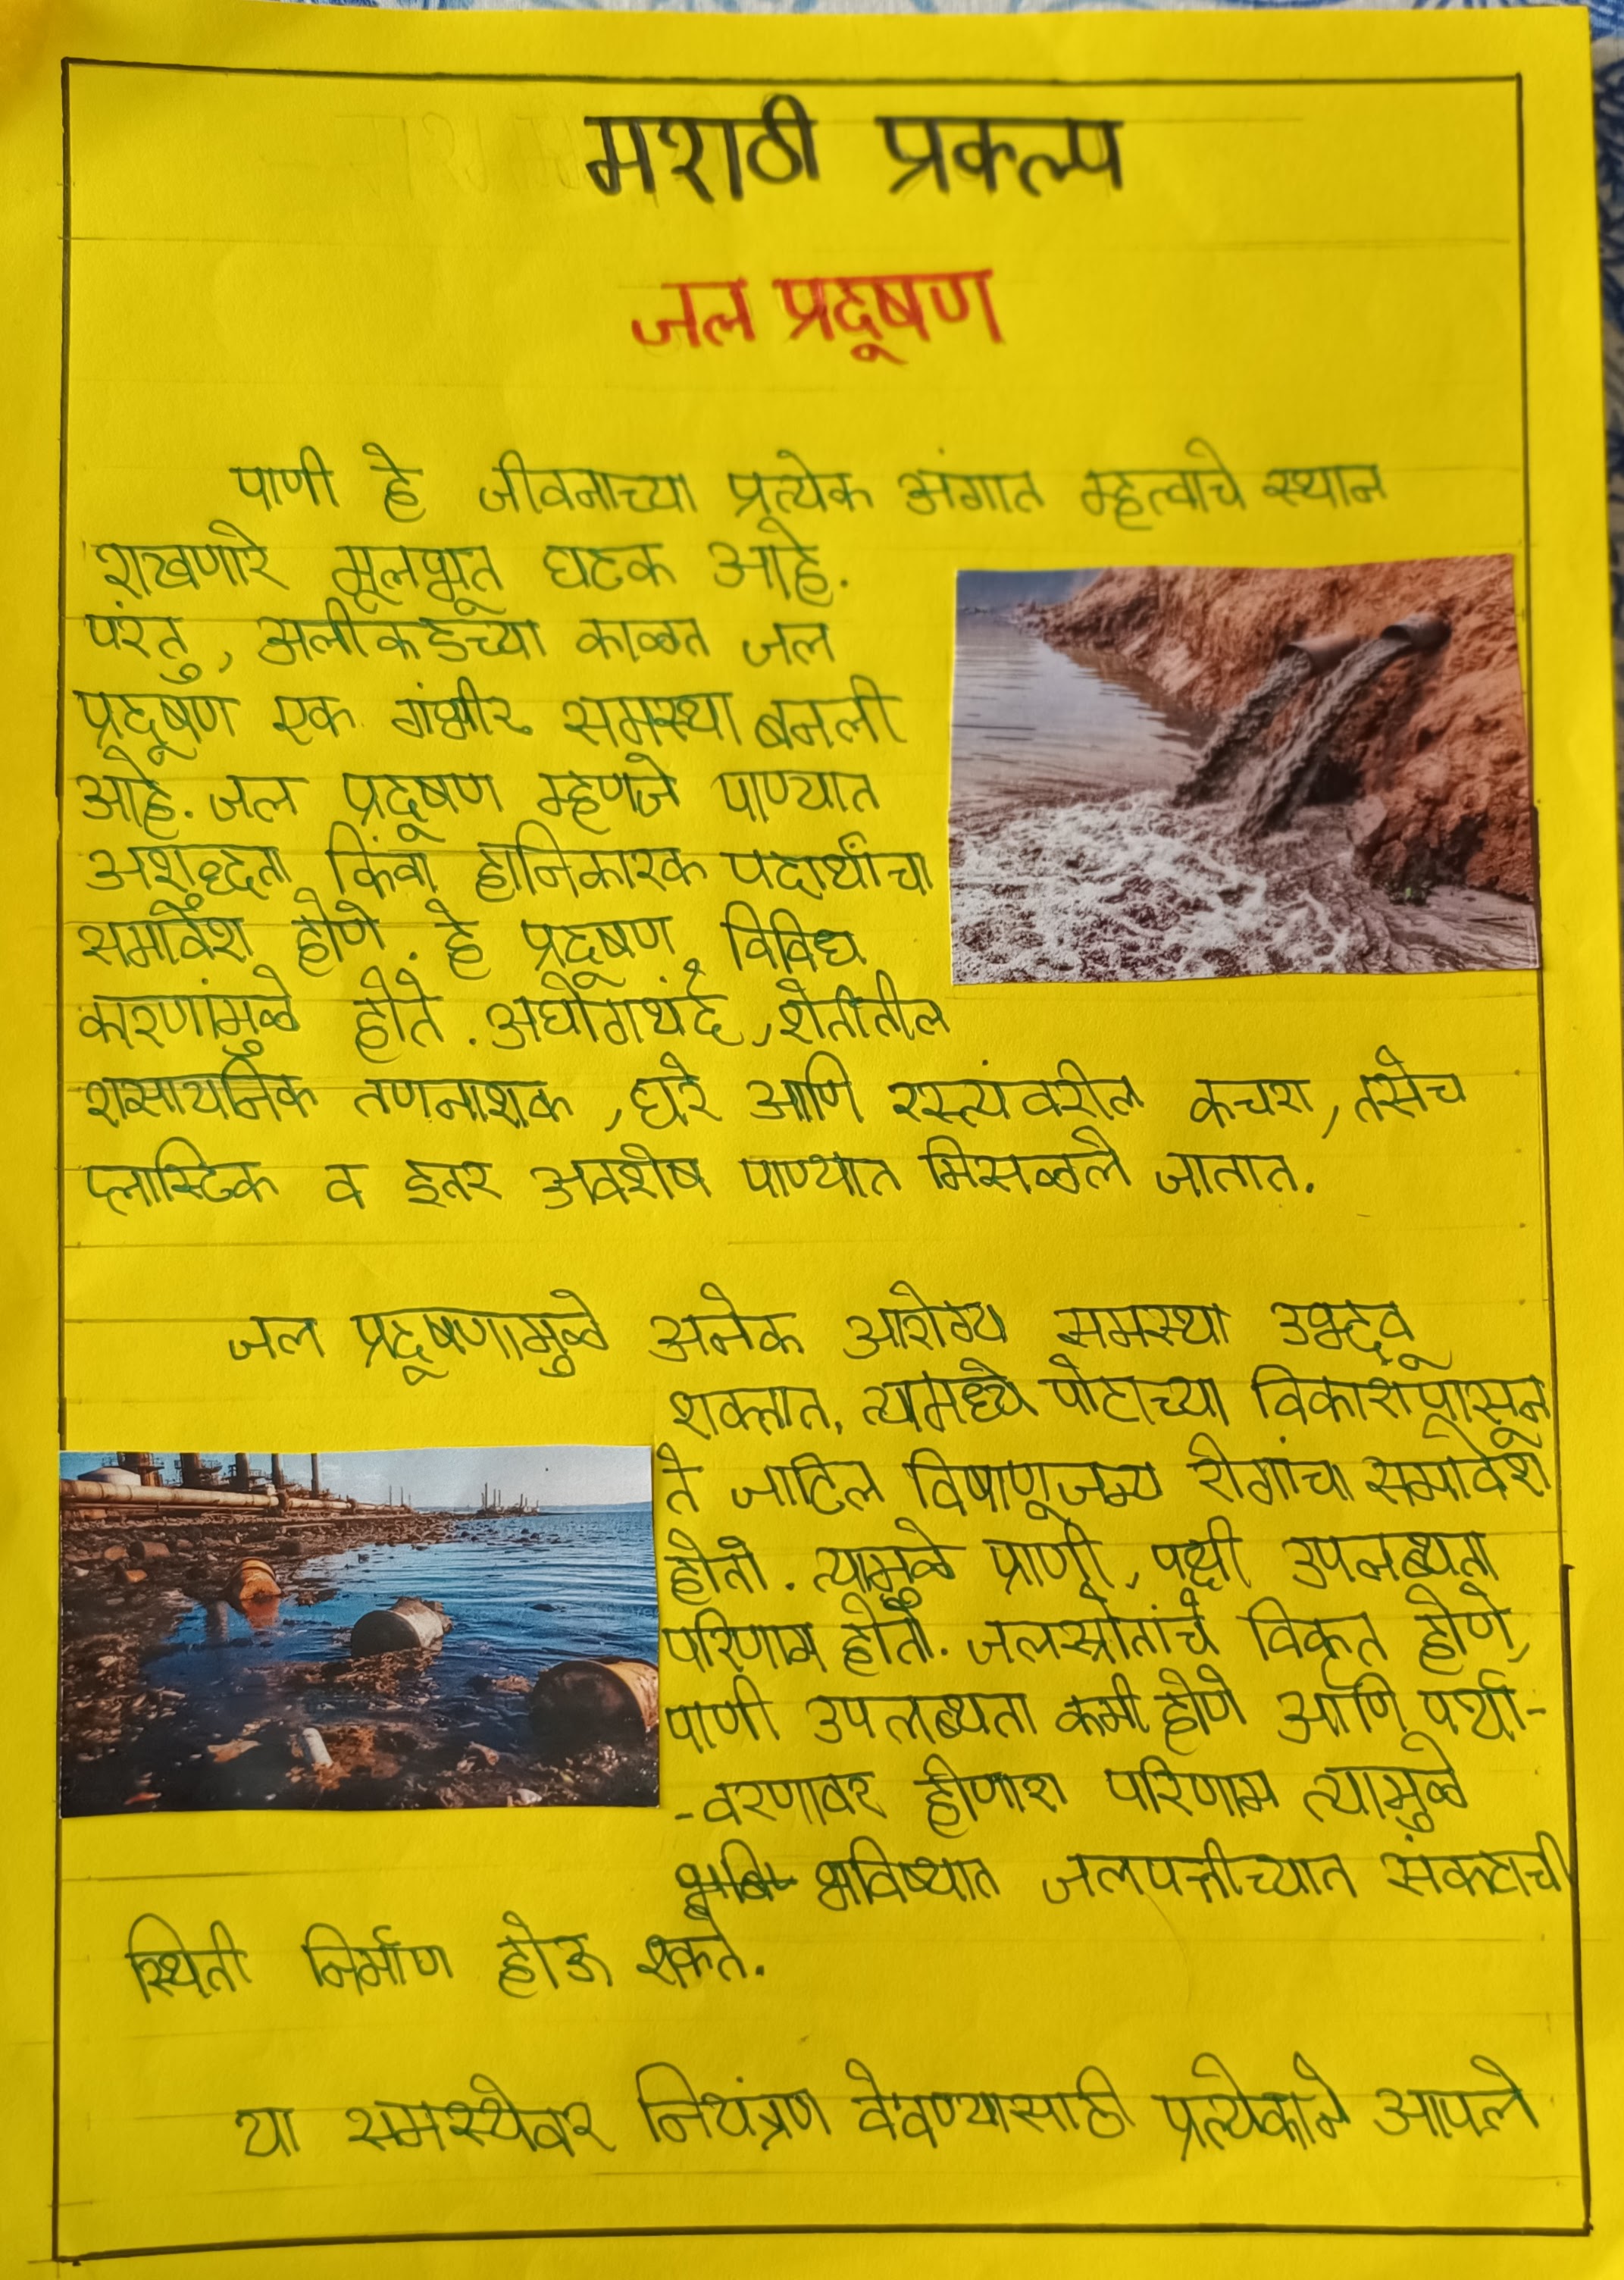 मराठी प्रकल्प
जल प्रदूषण
पाणी हे जीवनाच्या प्रत्येक अंगात म्हत्वाचे स्थान
राखणारे मूलभूत घटक आहे.
परंतु, अलीकडच्या काळात जल
प्रदूषण एक गंभीर समस्था बनली
आहे. जल प्रदूषण म्हणजे पाण्यात
अशुद्धता किंवा हानिकारक पदार्थांचा
समावेश होणे. हे प्रदूषण विविध
कारणांमुळे होते. अघोगथंदे, शेतीतील
रासायनिक तणनाशक, घरे आणि रस्त्यंवरील कचरा, तसेच
प्लास्टिक व इतर अवशेष पाण्यात मिसळले जातात.
जल प्रदूषणामुळे अनेक आरोग्य समस्था उद्भवू
शकतात. त्यामध्ये पोटाच्या विकारापासून
ते जाटिल विषाणूजन्य रोगांचा समावेश
होतो. त्यामुळे प्राणी, पक्षी उपलब्धता
परिणाम होतो. जलस्रोतांचे विकृत होणे,
पाणी उपलब्धता कमी होणे आणि पर्या-
-वरणावर होणारा परिणाम त्यामुळे
भविष्यात जलपत्तीच्यात संकटाची
स्थिती निर्माण होऊ शकते.
या समस्येवर नियंत्रण वेवण्यासाठी प्रत्येकाने आपले